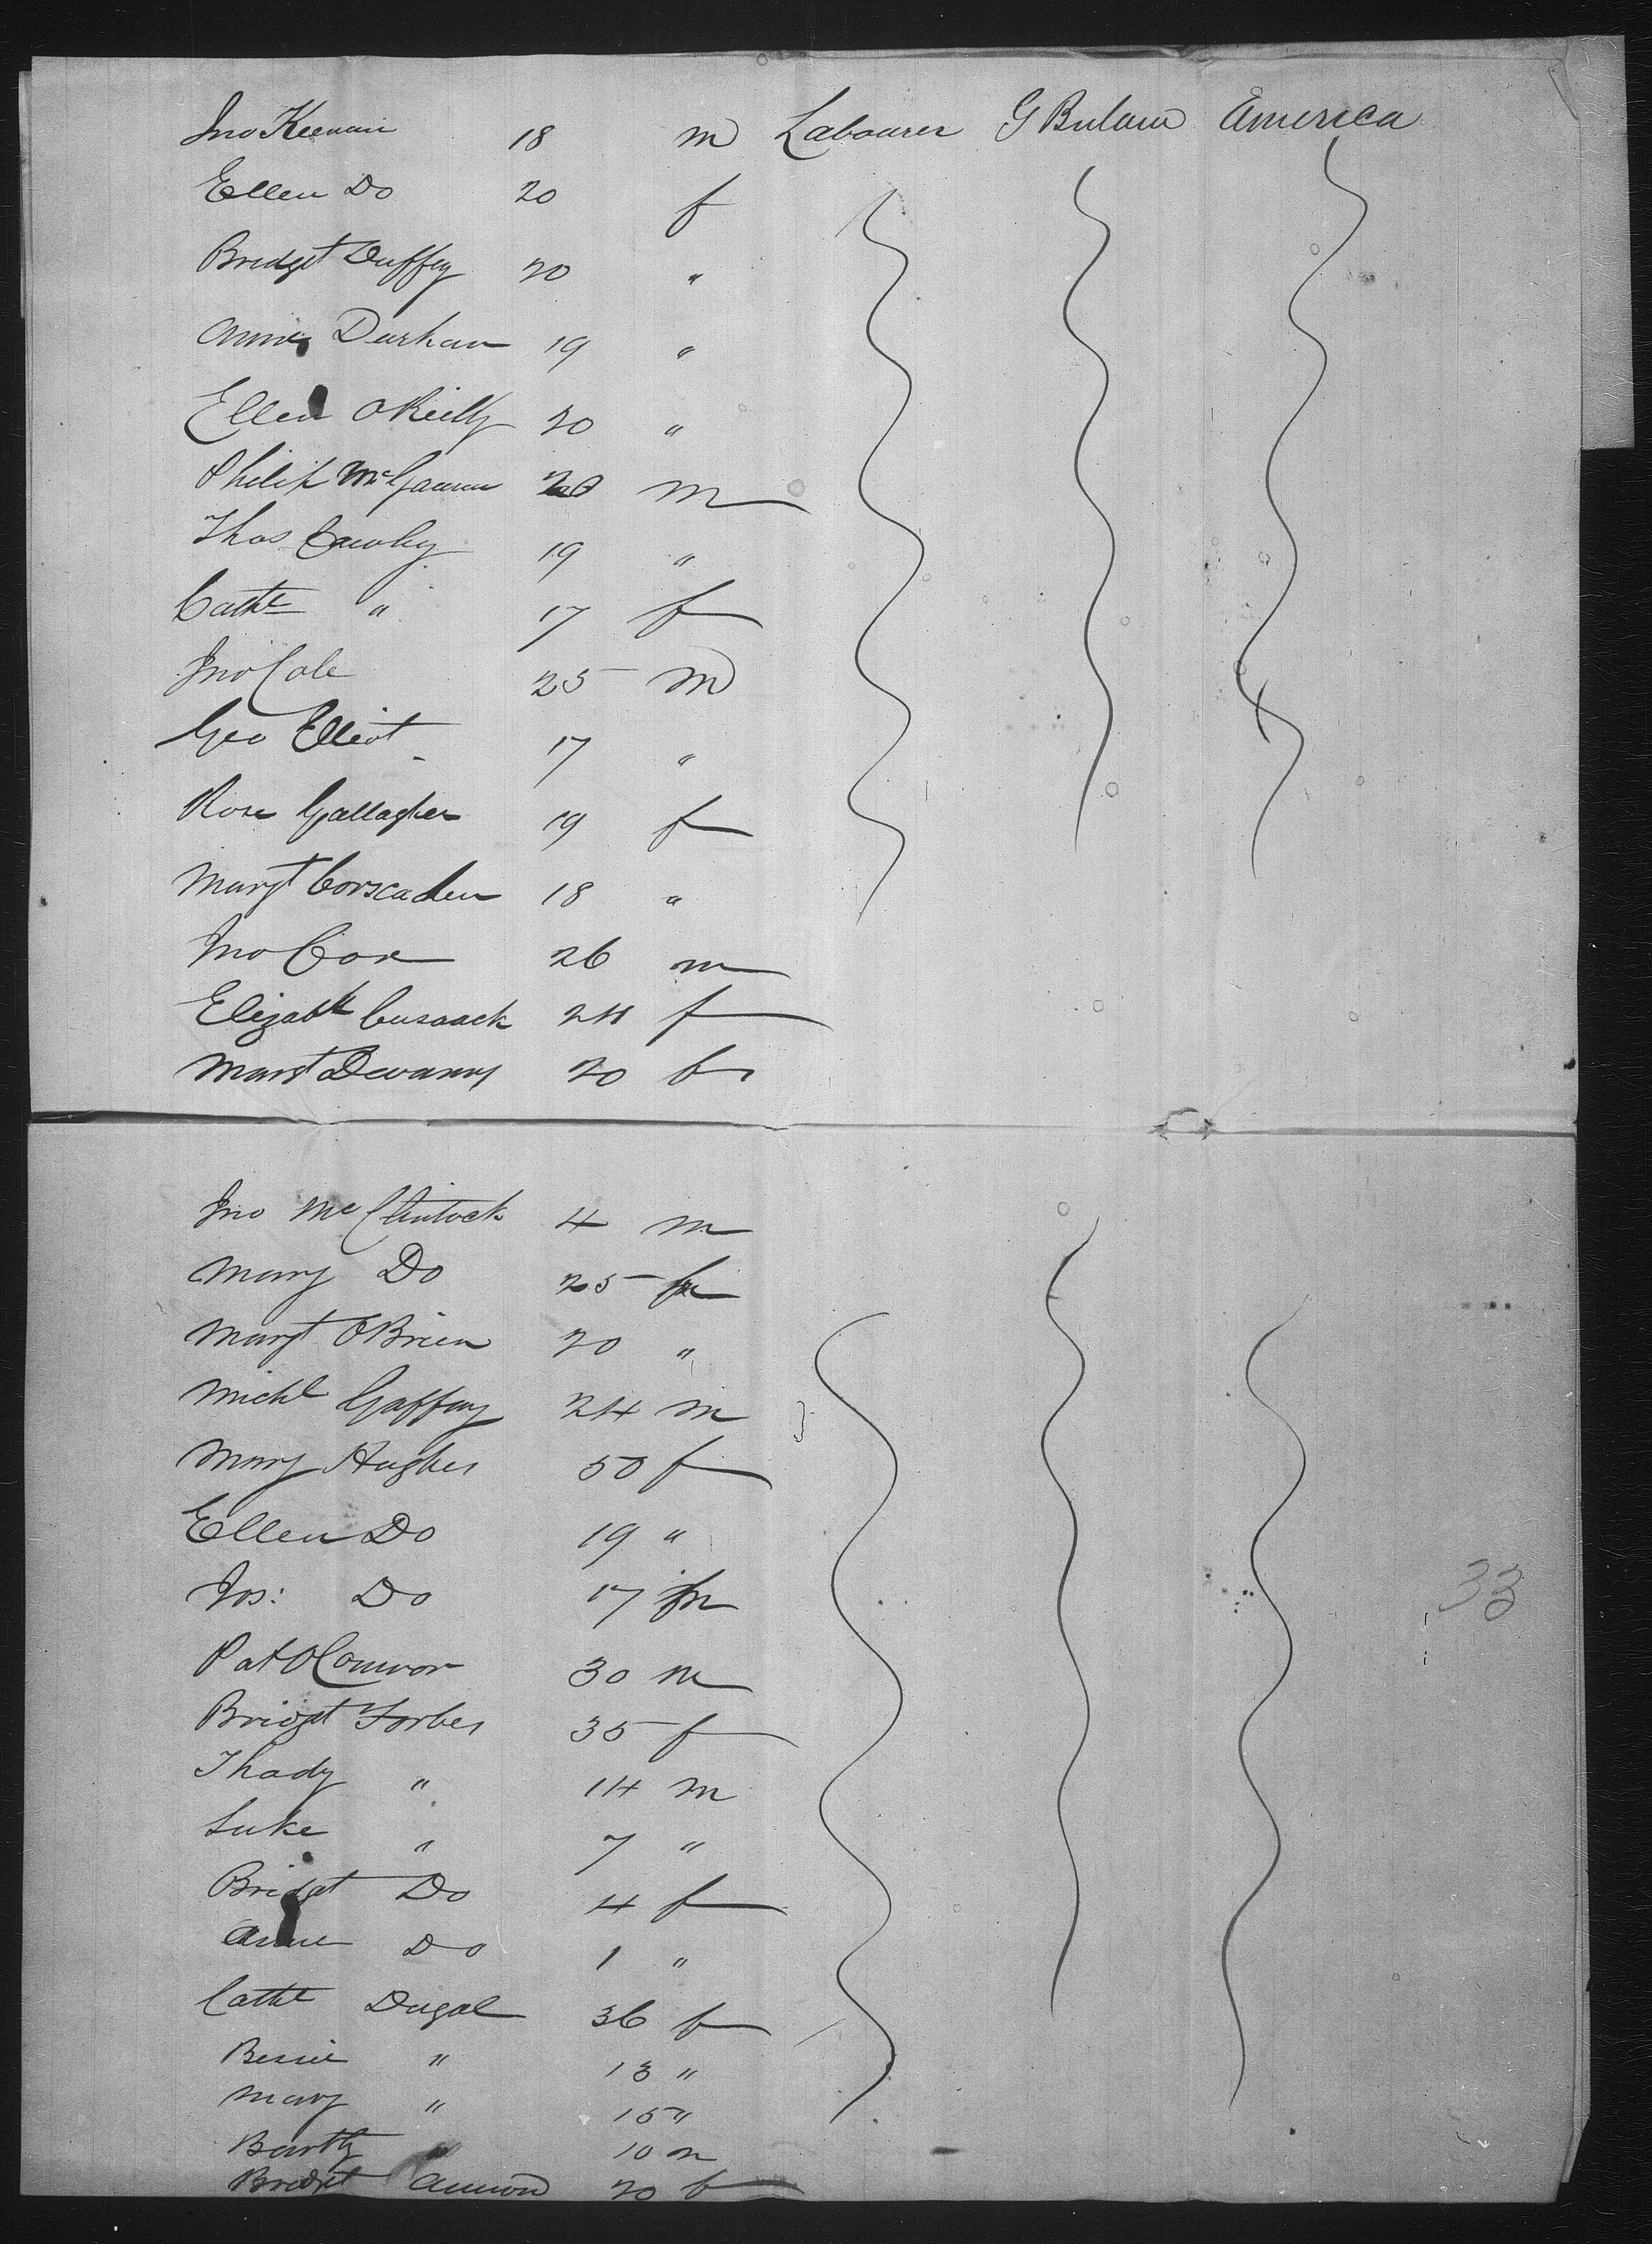 Jno Keenan 18 m Labourer G Britain America
Ellen Do 20 f
Bridget Duffey 20 "
Annie Durkan 19 "
Ellen OReilly 20 "
Philip McGaunn 20 m
Thos Cawley 19 "
Cathe " 17 f
Jno Cole 25 m
Geo Elliot 17 "
Rose Gallagher 19 f
Margt Corscaden 18 "
Jno Cox 26 m
Elizabth Cusaack 24 f
Margt Devanny 20 f
Jno McClintock 4 m
Mary Do 25 f
Margt OBrien 20 "
Michl Gaffney 24 m
Mary Hughes 50 f
Ellen Do 19 "
Jos: Do 17 m
Pat OConnor 30 m
Bridget Forbes 35 f
Thady " 14 m
Luke " 7 "
Bridget Do 4 f
Anne Do 1 "
Cathe Dugal 36 f
Bessie " 13 "
Mary " 15 "
Bartly " 10 m
Bridget 20 f
33